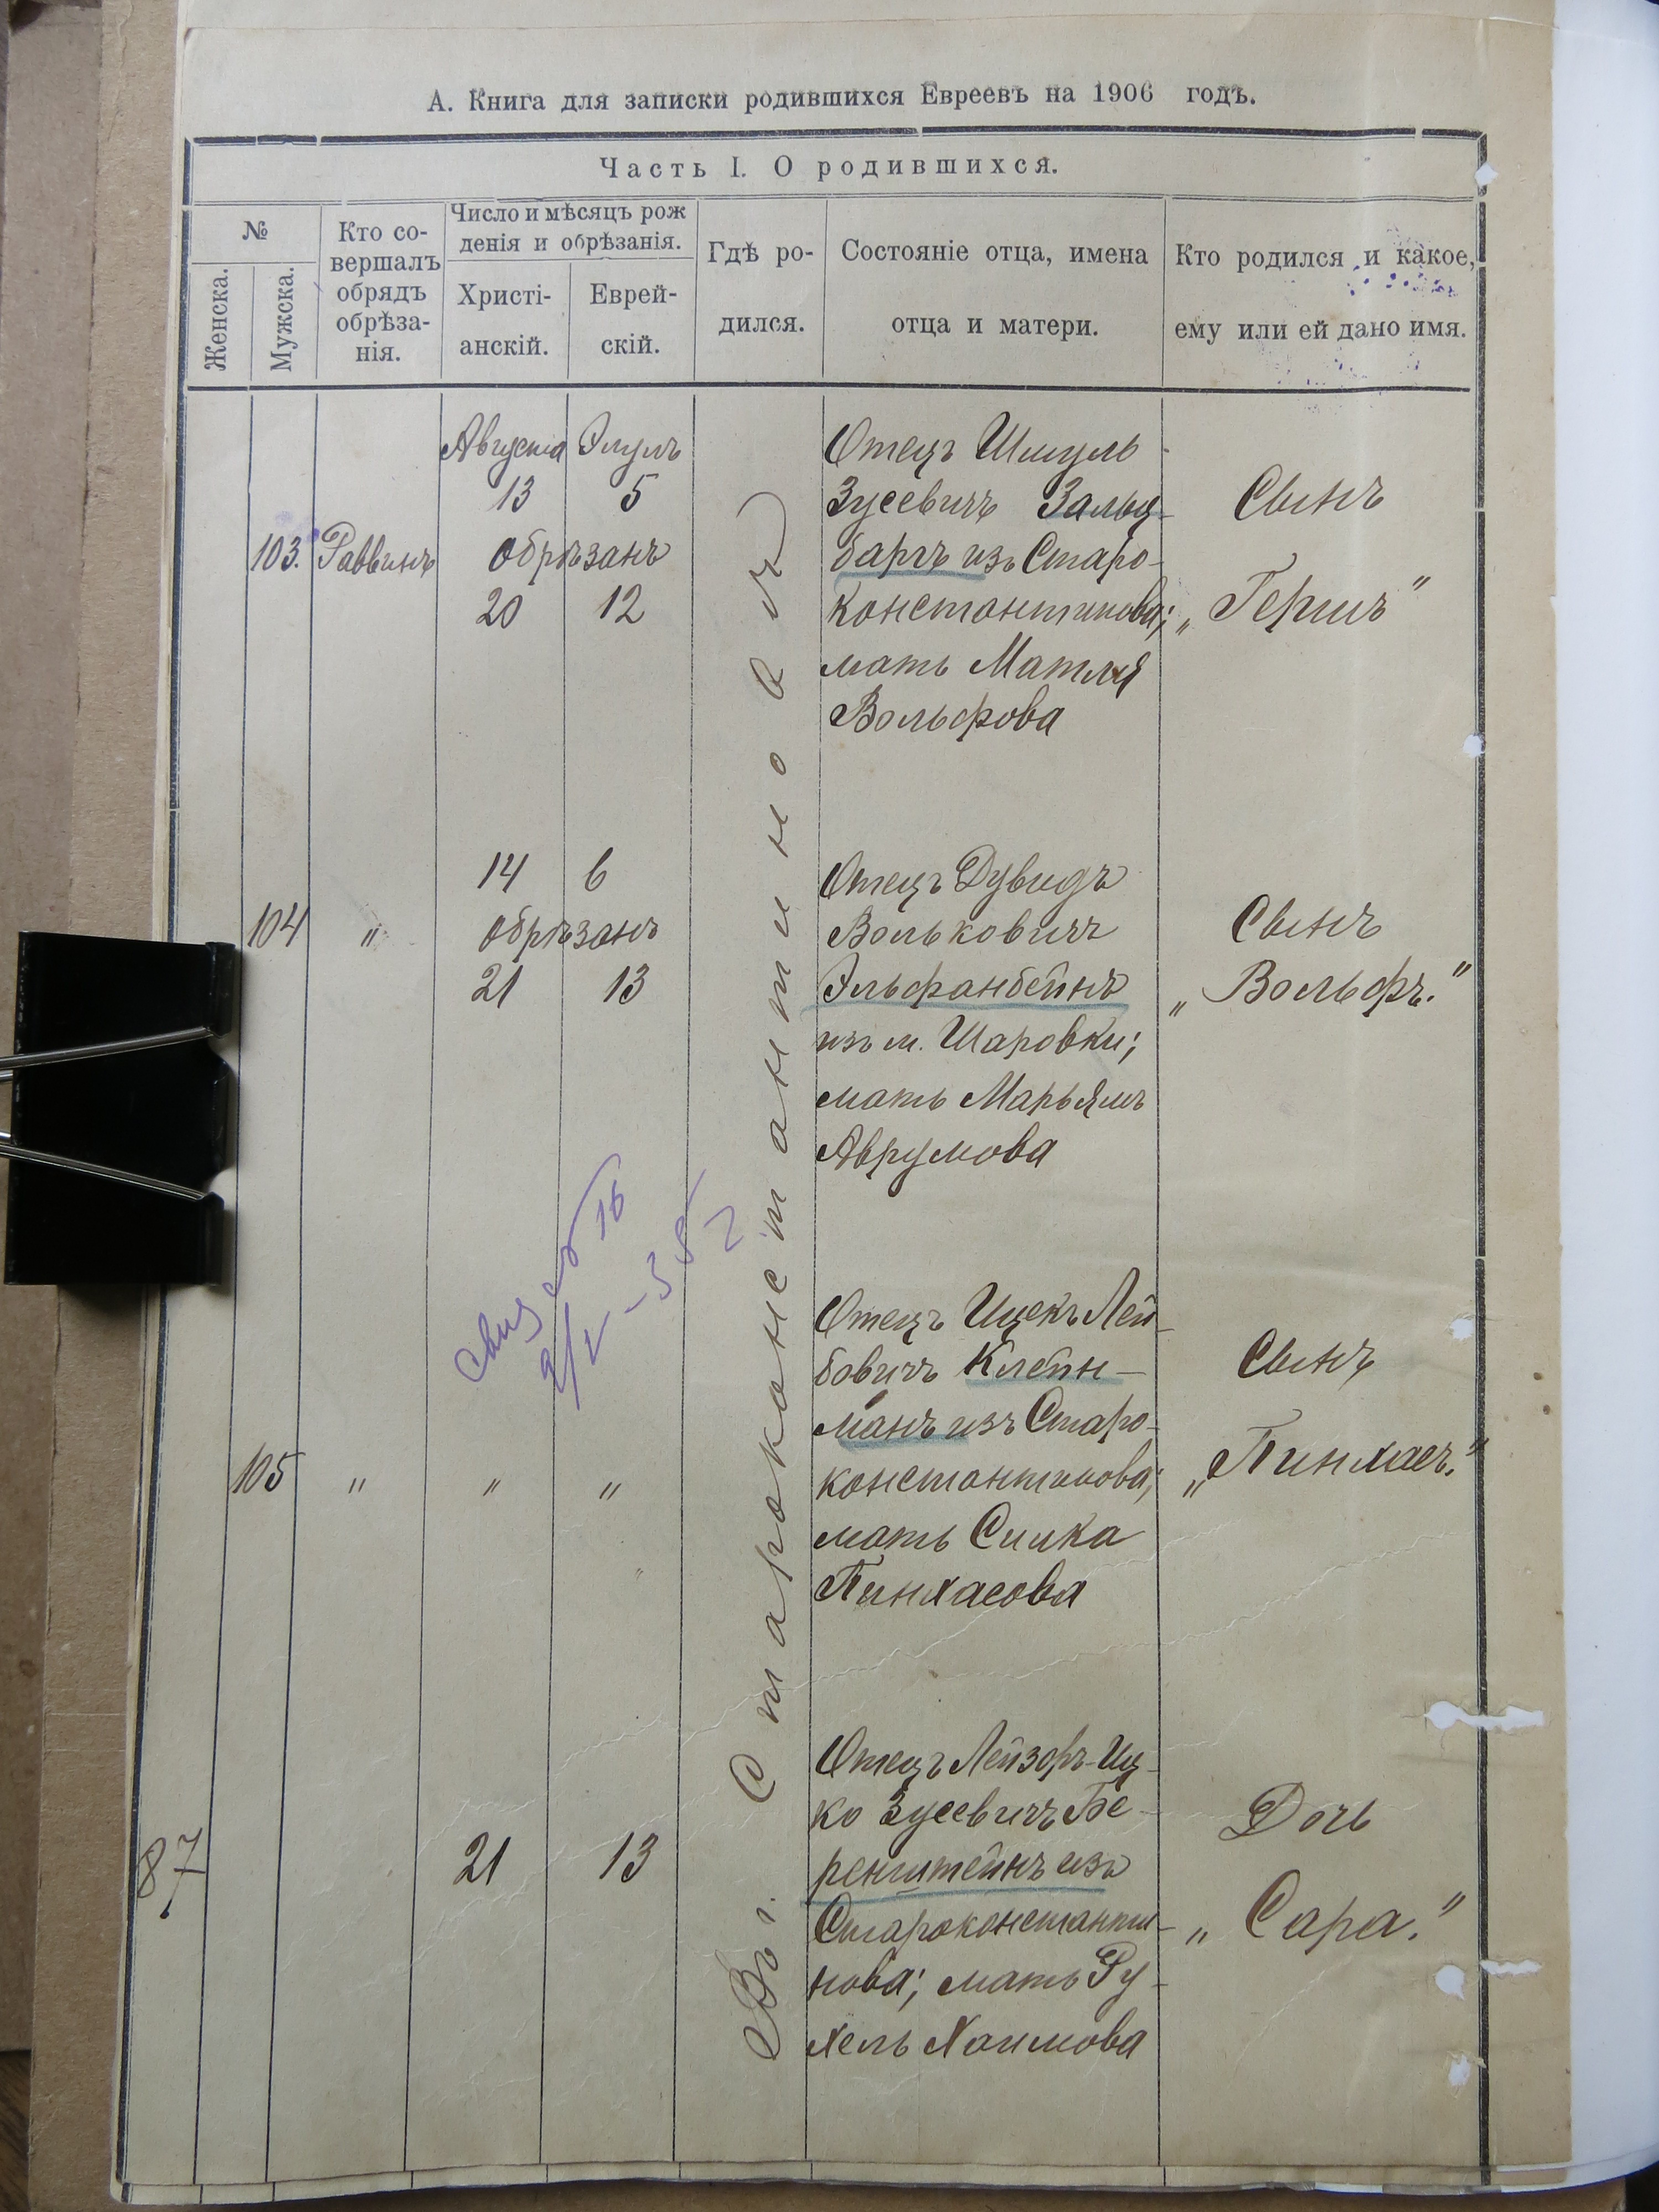 А. Книга для записки родившихся Евреевъ на 1906 годъ.
Часть I. О родившихся.
№
Женска.
Мужска.
Кто со-
вершалъ
обрядъ
обрѣза-
нія.
Число и мѣсяцъ рож
денія и обрѣзанія.
Христі-
анскій.
Еврей-
скій.
Гдѣ ро-
дился.
Состояніе отца, имена
отца и матери.
Кто родился и какое,
ему или ей дано имя.
Въ г. Староконстантиновѣ
103.
Раввинъ
Августа Элулъ
13 5
обрѣзанъ
20 12
Отецъ Шмуль
Зусевичъ Зальц-
баргъ изъ Старо-
константинова;
мать Матля
Вольфова
Сынъ
„Гершъ"
104
"
14 6
обрѣзанъ
21 13
Отецъ Дувидъ
Вольковичъ
Эльфанбейнъ
изъ м. Шаровки;
мать Марьямъ
Аврумова
Сынъ
„Вольфъ."
105
"
" "
Отецъ Ицекъ Лей-
бовичъ Клейн-
манъ изъ Старо-
константинова;
мать Симка
Пинхасова
Сынъ
„Пинхасъ."
87
21 13
Отецъ Лейзоръ-Иц-
ко Зусевичъ Бе-
ренштейнъ изъ
Староконстанти-
нова; мать Ру-
хель Хаимова
Дочь
„Сара."